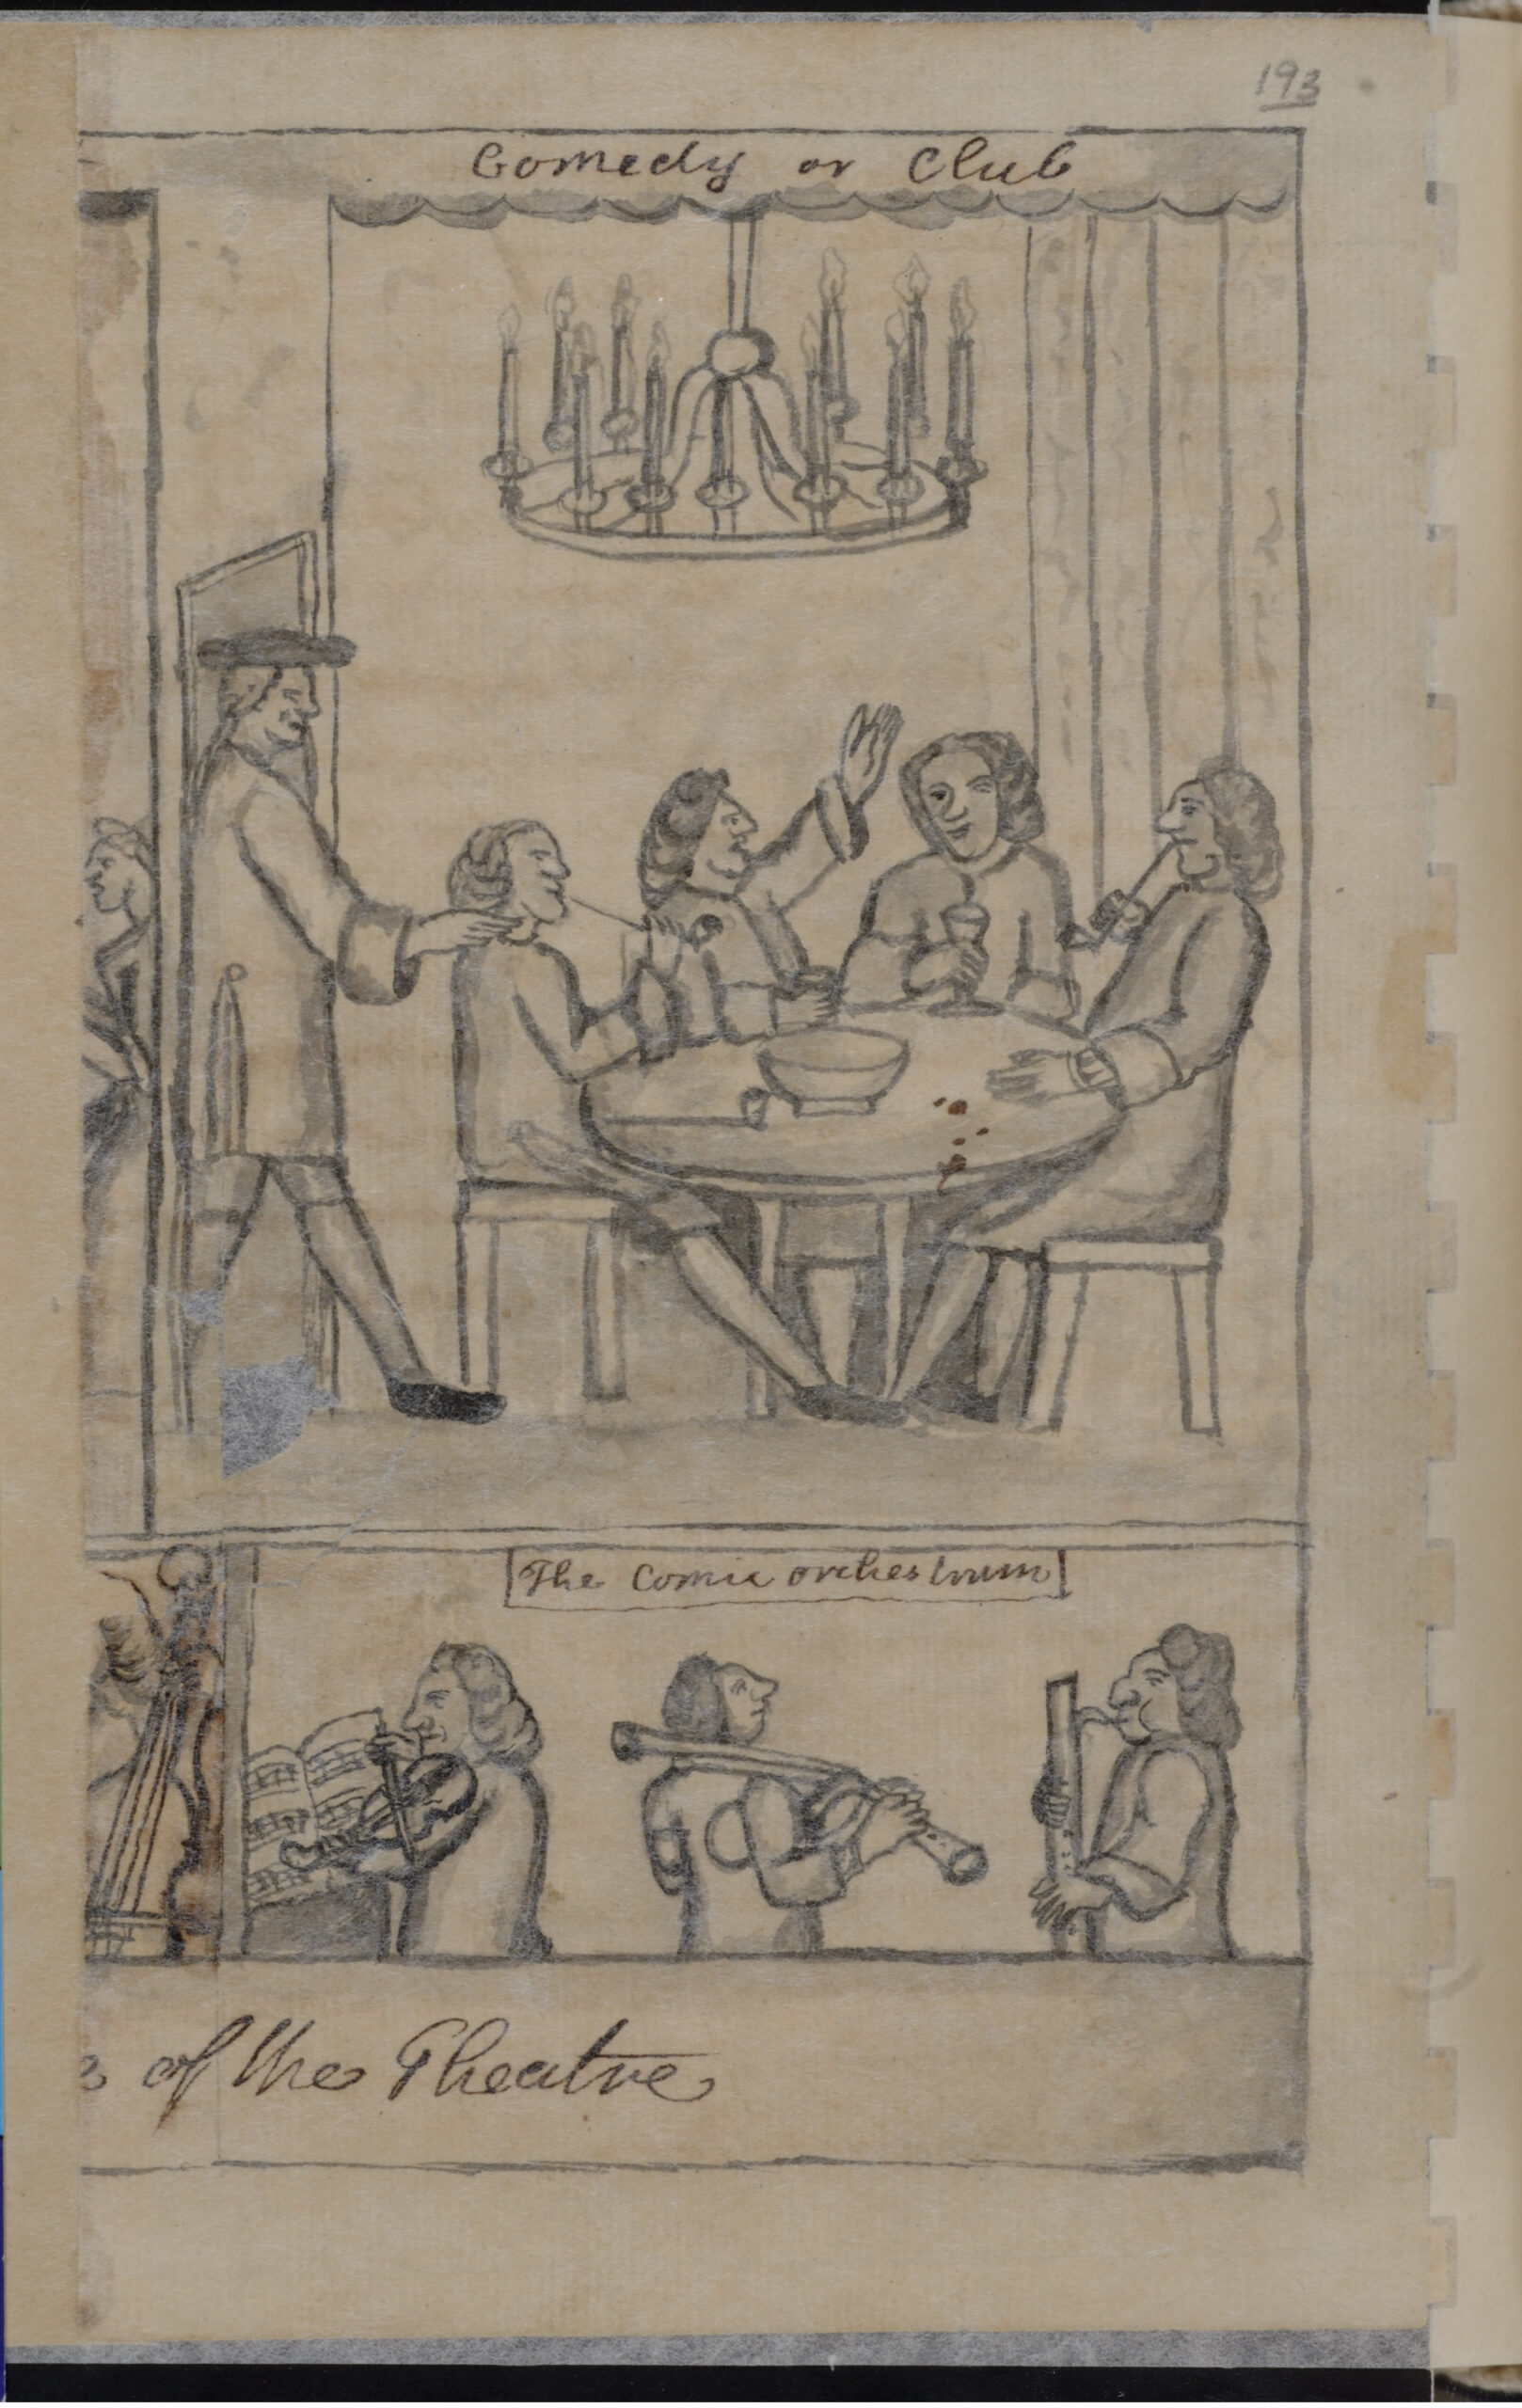 193
Comedy or Club
The Comic orchestrum
of the Theatre